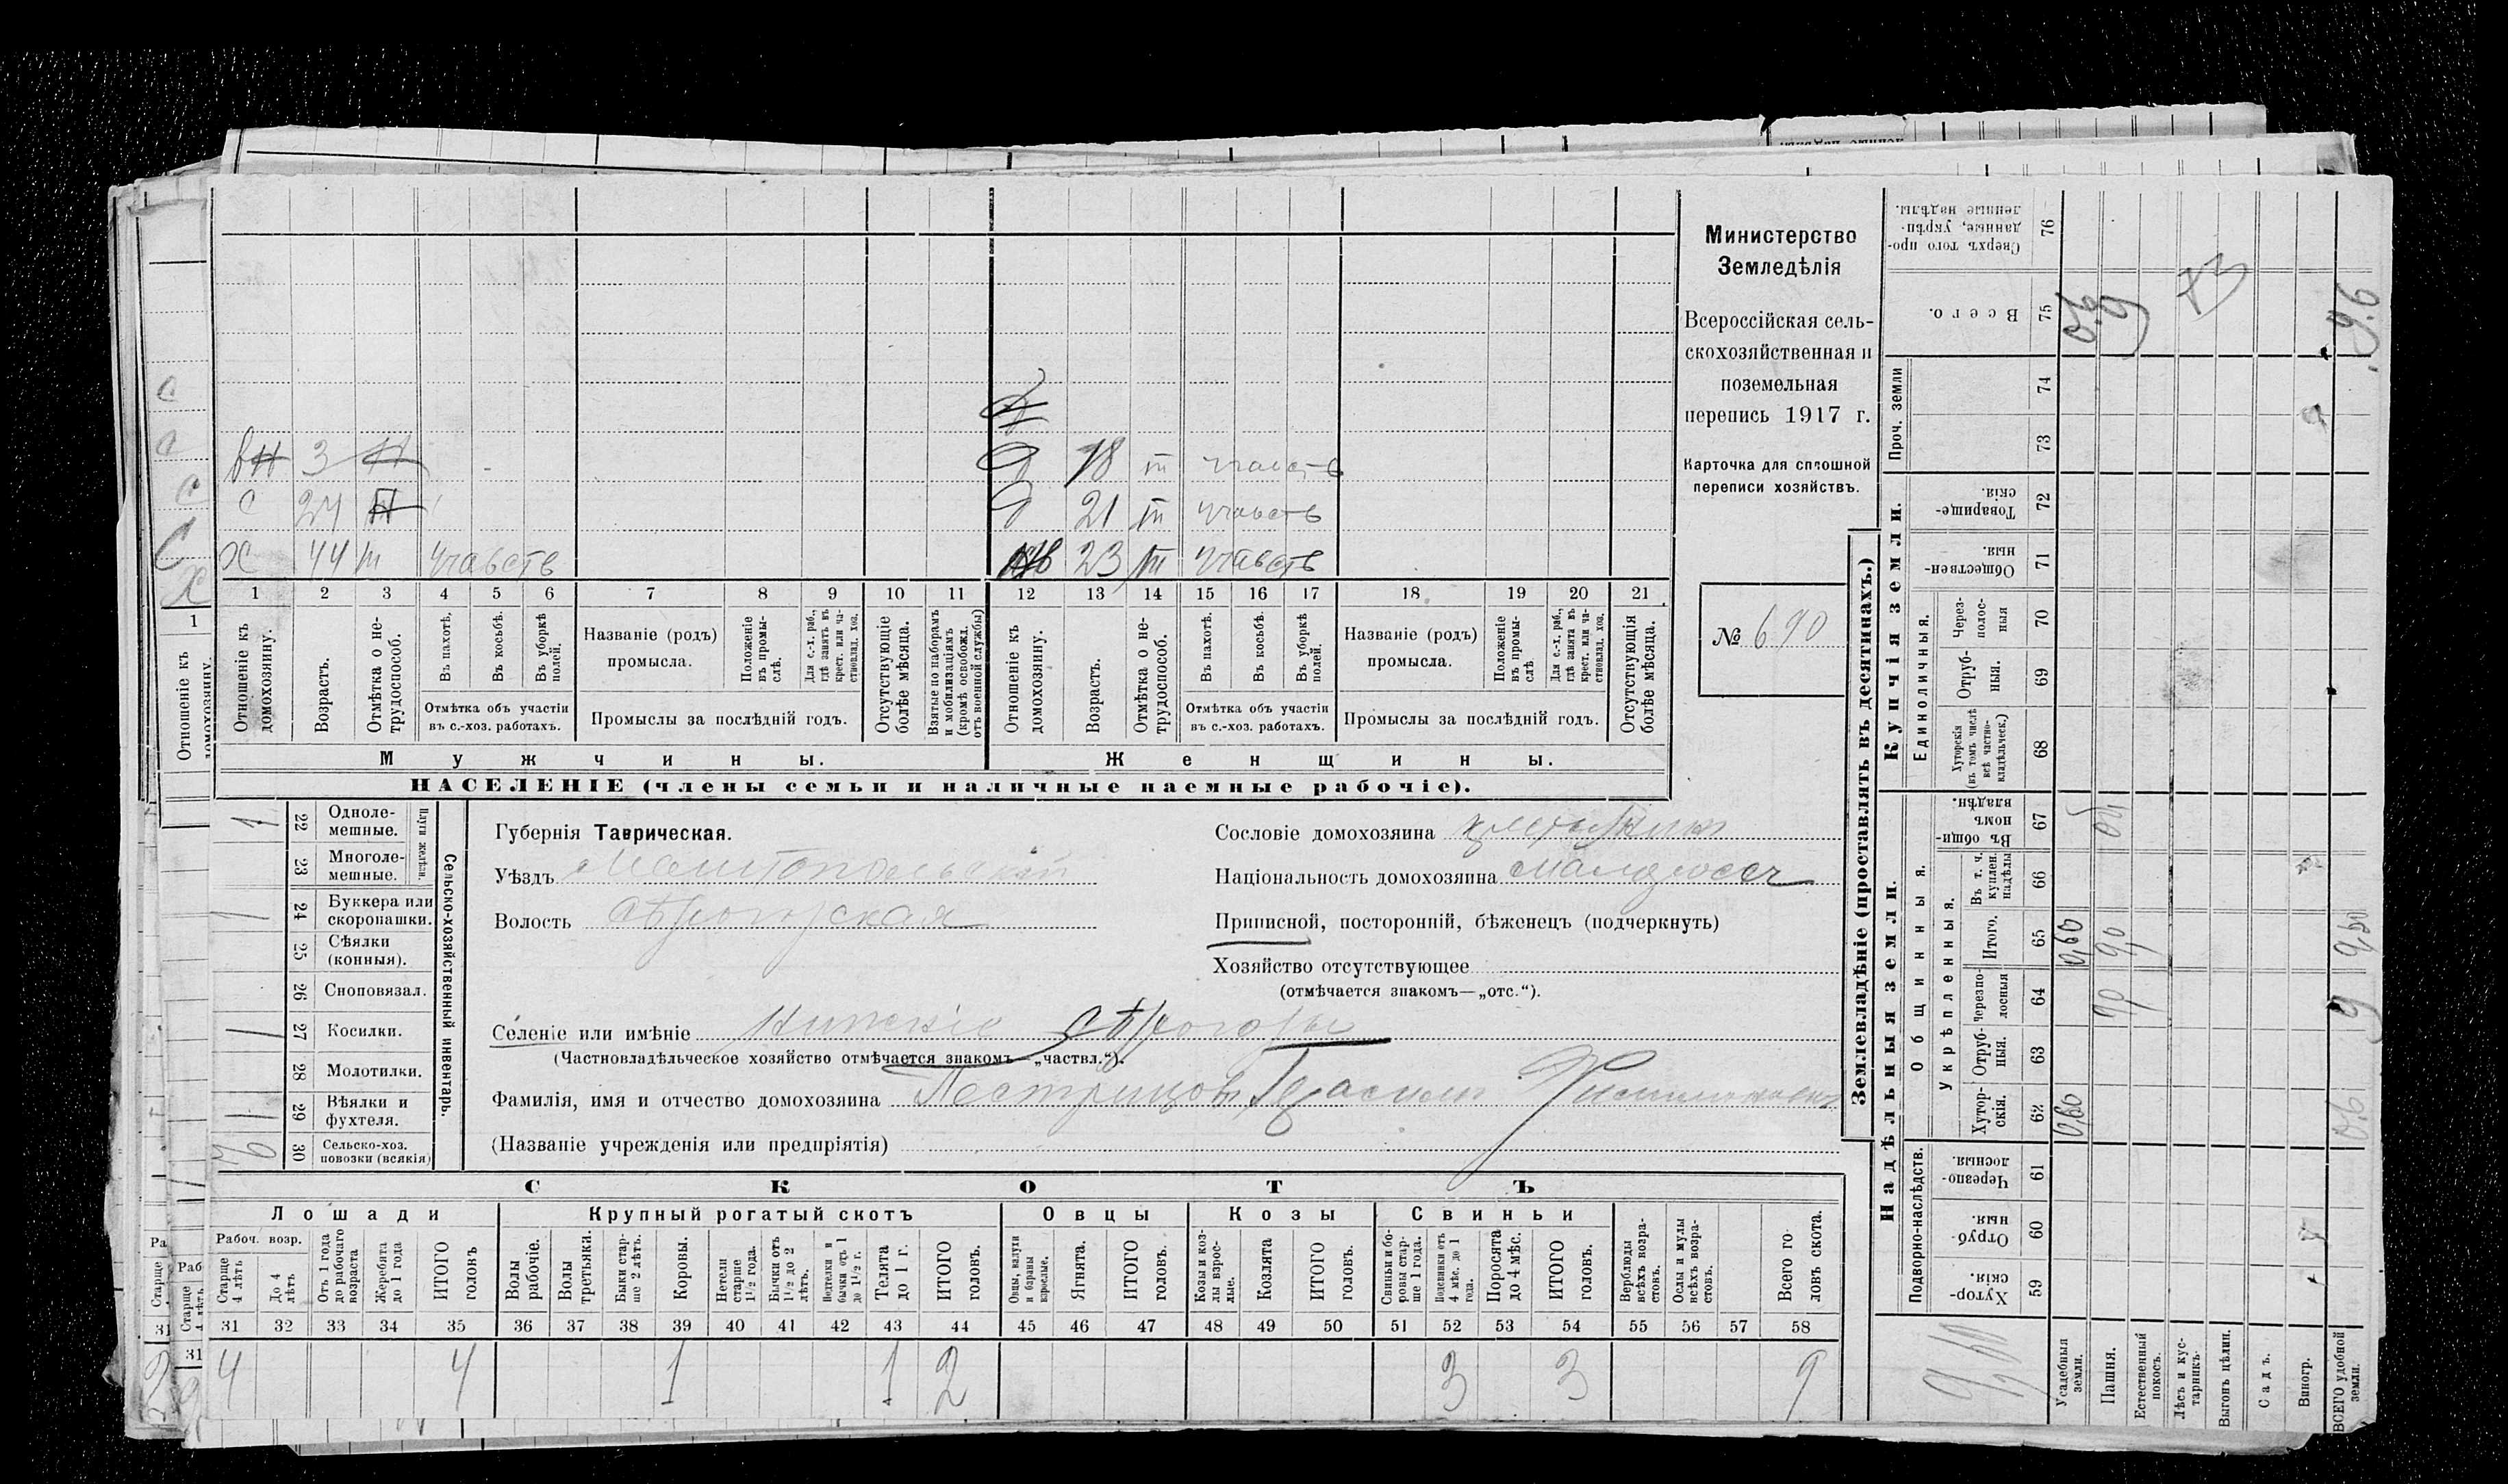 вн 3 н
с 24 п
х 44 т участв
д
д 18 т участв
д 21 т участв
23 т участв
1 2 3 4 5 6 7 8 9 10 11 12 13 14 15 16 17 18 19 20 21
Отношеніе къ домохозяину.
Возрастъ.
Отмѣтка о не-трудоспособ.
Въ пахотѣ.
Въ косьбѣ.
Въ уборкѣ полей.
Отмѣтка объ участіи
въ с.-хоз. работахъ.
Названіе (родъ)
промысла.
Положеніе въ промы-слѣ.
Для с.-х. раб., гдѣ занятъ въ крест. или ча-стновлад. хоз.
Промыслы за послѣдній годъ.
Отсутствующіе болѣе мѣсяца.
Взятые по наборамъ и мобилизаціямъ (кромѣ освобожд. отъ военной службы)
Отношеніе къ домохозяину.
Возрастъ.
Отмѣтка о не-трудоспособ.
Въ пахотѣ.
Въ косьбѣ.
Въ уборкѣ полей.
Отмѣтка объ участіи
въ с.-хоз. работахъ.
Названіе (родъ)
промысла.
Положеніе въ промы-слѣ
Для с.-х. раб., гдѣ занята въ крест. или ча-стновлад. хоз.
Промыслы за послѣдній годъ.
Отсутствующія болѣе мѣсяца.
Мужчины.
Женщины.
НАСЕЛЕНІЕ (члены семьи и наличные наемные рабочіе).
Министерство
Земледѣлія
Всероссійская сель-
скохозяйственная и
поземельная
перепись 1917 г.
Карточка для сплошной
переписи хозяйствъ.
№ 690
Сельско-хозяйственный инвентарь.
Плуги желѣзн.
1 22 Одноле-мешные.
23 Многоле-мешные.
1 24 Буккера или скоропашки.
25 Сѣялки (конныя).
26 Сноповязал.
1 27 Косилки.
28 Молотилки.
1 29 Вѣялки и фухтеля.
30 Сельско-хоз. повозки (всякія)
Губернія Таврическая.
Уѣздъ Мелитопольскій
Волость Сѣрогозская
Селеніе или имѣніе Нижніе Сѣрогозы
(Частновладѣльческое хозяйство отмѣчается знакомъ—„частвл.“).
Фамилія, имя и отчество домохозяина
(Названіе учрежденія или предпріятія)
Сословіе домохозяина крестьянин
Національность домохозяина малоросс
Приписной, посторонній, бѣженецъ (подчеркнуть)
Хозяйство отсутствующее
(отмѣчается знакомъ—„отс.“).
СКОТЪ
Лошади
Крупный рогатый скотъ
Овцы
Козы
Свиньи
Рабоч. возр.
Старше 4 лѣтъ
До 4 лѣтъ
Отъ 1 года до рабочаго возраста
Жеребята до 1 года
ИТОГО головъ
Волы рабочіе.
Волы третьяки.
Быки стар-ше 2 лѣтъ.
Коровы.
Нетели старше 1½ года.
Бычки отъ 1½ до 2 лѣтъ.
Подтелки и бычки отъ 1 до 1½ г.
Телята до 1 г.
ИТОГО головъ.
Овцы, валухи и бараны взрослые.
Ягнята.
ИТОГО головъ.
Козы и коз-лы взрос-лые.
Козлята
ИТОГО головъ.
Свиньи и бо-ровы стар-ше 1 года.
Подсвинки отъ 4 мѣс. до 1 года.
Поросята до 4 мѣс.
ИТОГО головъ.
Верблюды всѣхъ возра-стовъ.
Ослы и мулы всѣхъ возра-стовъ.
Всего го-ловъ скота.
31 32 33 34 35 36 37 38 39 40 41 42 43 44 45 46 47 48 49 50 51 52 53 54 55 56 57 58
4 4 1 1 2 3 3 9
Землевладѣніе (проставлять въ десятинахъ.)
Купчія земли.
Надѣльныя земли.
Проч. земли
Единоличныя.
Общинныя.
Укрѣпленныя.
Подворно-наслѣдств.
76 Сверхъ того про-данные, укрѣп-ленные надѣлы.
75 Всего.
74
73
72 Товарище-скія.
71 Обществен-ныя.
70 Через-полос-ныя
69 Отруб-ныя.
68 Хуторскія (въ томъ числѣ всѣ частно-владѣльческ.)
67 Въ общи-номъ владѣн.
66 Въ т. ч. куплен. надѣлы
65 Итого.
64 Черезпо-лосныя
63 Отруб-ныя.
62 Хутор-скія.
61 Черезпо-лосныя.
60 Отруб-ныя.
59 Хутор-скія.
Усадебныя земли.
Пашня.
Естественный покосъ.
Лѣсъ и кус-тарникъ.
Выгонъ цѣлин.
Садъ.
Виногр.
ВСЕГО удобной земли.
0,60 0,60
9,60
9,60
9.6